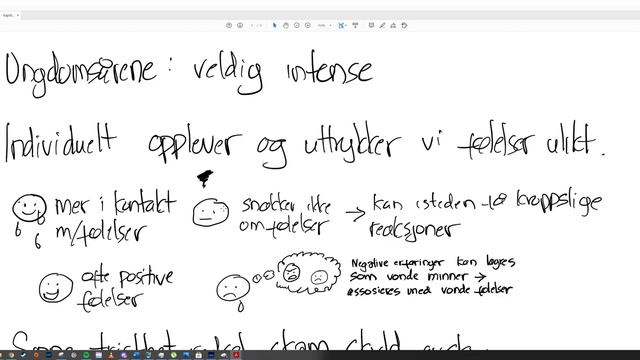 Ungdomsårene: veldig intense
Individuelt opplever og uttrykker vi følelser ulikt.
mer i kontakt
m/følelser
snakker ikke
om følelser
→ kan isteden få kroppslige
reaksjoner
ofte positive
følelser
Negative erfaringer kan lagres
som vonde minner →
assosieres med vonde følelser